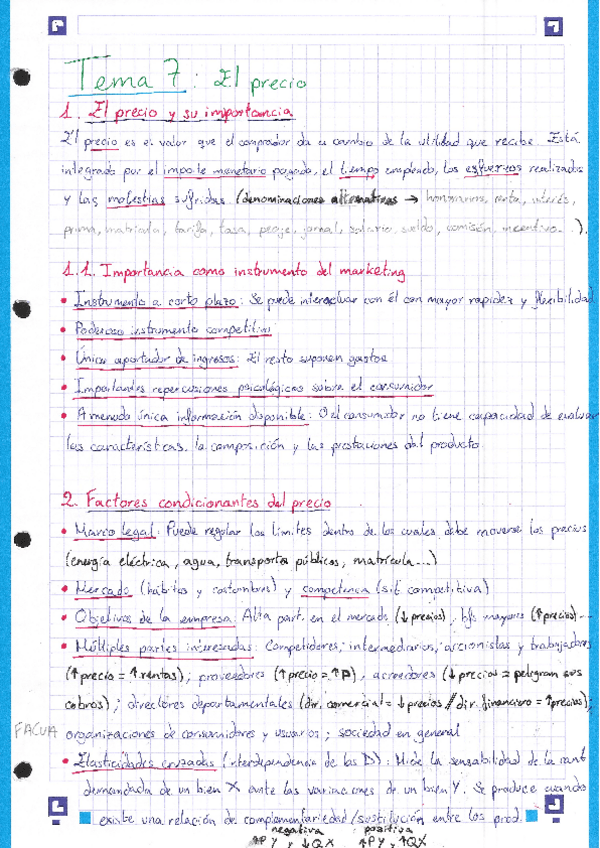 Tema 7: El precio
1. El precio y su importancia
El precio es el valor que el comprador da a cambio de la utilidad que recibe. Está
integrado por el importe monetario pagado, el tiempo empleado, los esfuerzos realizados
y las molestias sufridas (denominaciones alternativas → honorarios, renta, interés,
prima, matrícula, tarifa, tasa, peaje, jornal, salario, sueldo, comisión, incentivo...).
1.1. Importancia como instrumento del marketing
• Instrumento a corto plazo: Se puede interactuar con él con mayor rapidez y flexibilidad
• Poderoso instrumento competitivo
• Único aportador de ingresos: El resto suponen gastos
• Importantes repercusiones psicológicas sobre el consumidor
• A menudo única información disponible: O el consumidor no tiene capacidad de evaluar
las características, la composición y las prestaciones del producto.
2. Factores condicionantes del precio
• Marco legal: Puede regular los límites dentro de los cuales debe moverse los precios
(energía eléctrica, agua, transportes públicos, matrícula...)
• Mercado (hábitos y costumbres) y competencia (sit. competitiva)
• Objetivos de la empresa: Alta part. en el mercado (↓precios), bfs mayores (↑precio)...
• Múltiples partes interesadas: Competidores, intermediarios, accionistas y trabajadores
(↑precio = ↑rentas); proveedores (↑precio = ↑P), acreedores (↓precios = peligran sus
cobros); directores departamentales (dir. comercial = ↓precios // dir. financiero = ↑precios);
FACUA organizaciones de consumidores y usuarios; sociedad en general
• Elasticidades cruzadas (interdependencia de las D): Mide la sensabilidad de la cant
demandada de un bien X ante las variaciones de un bien Y. Se produce cuando
existe una relación de complementariedad/sustitución entre los prod.
negativa positiva
↑PY y ↓QX ↑PY, ↑QX